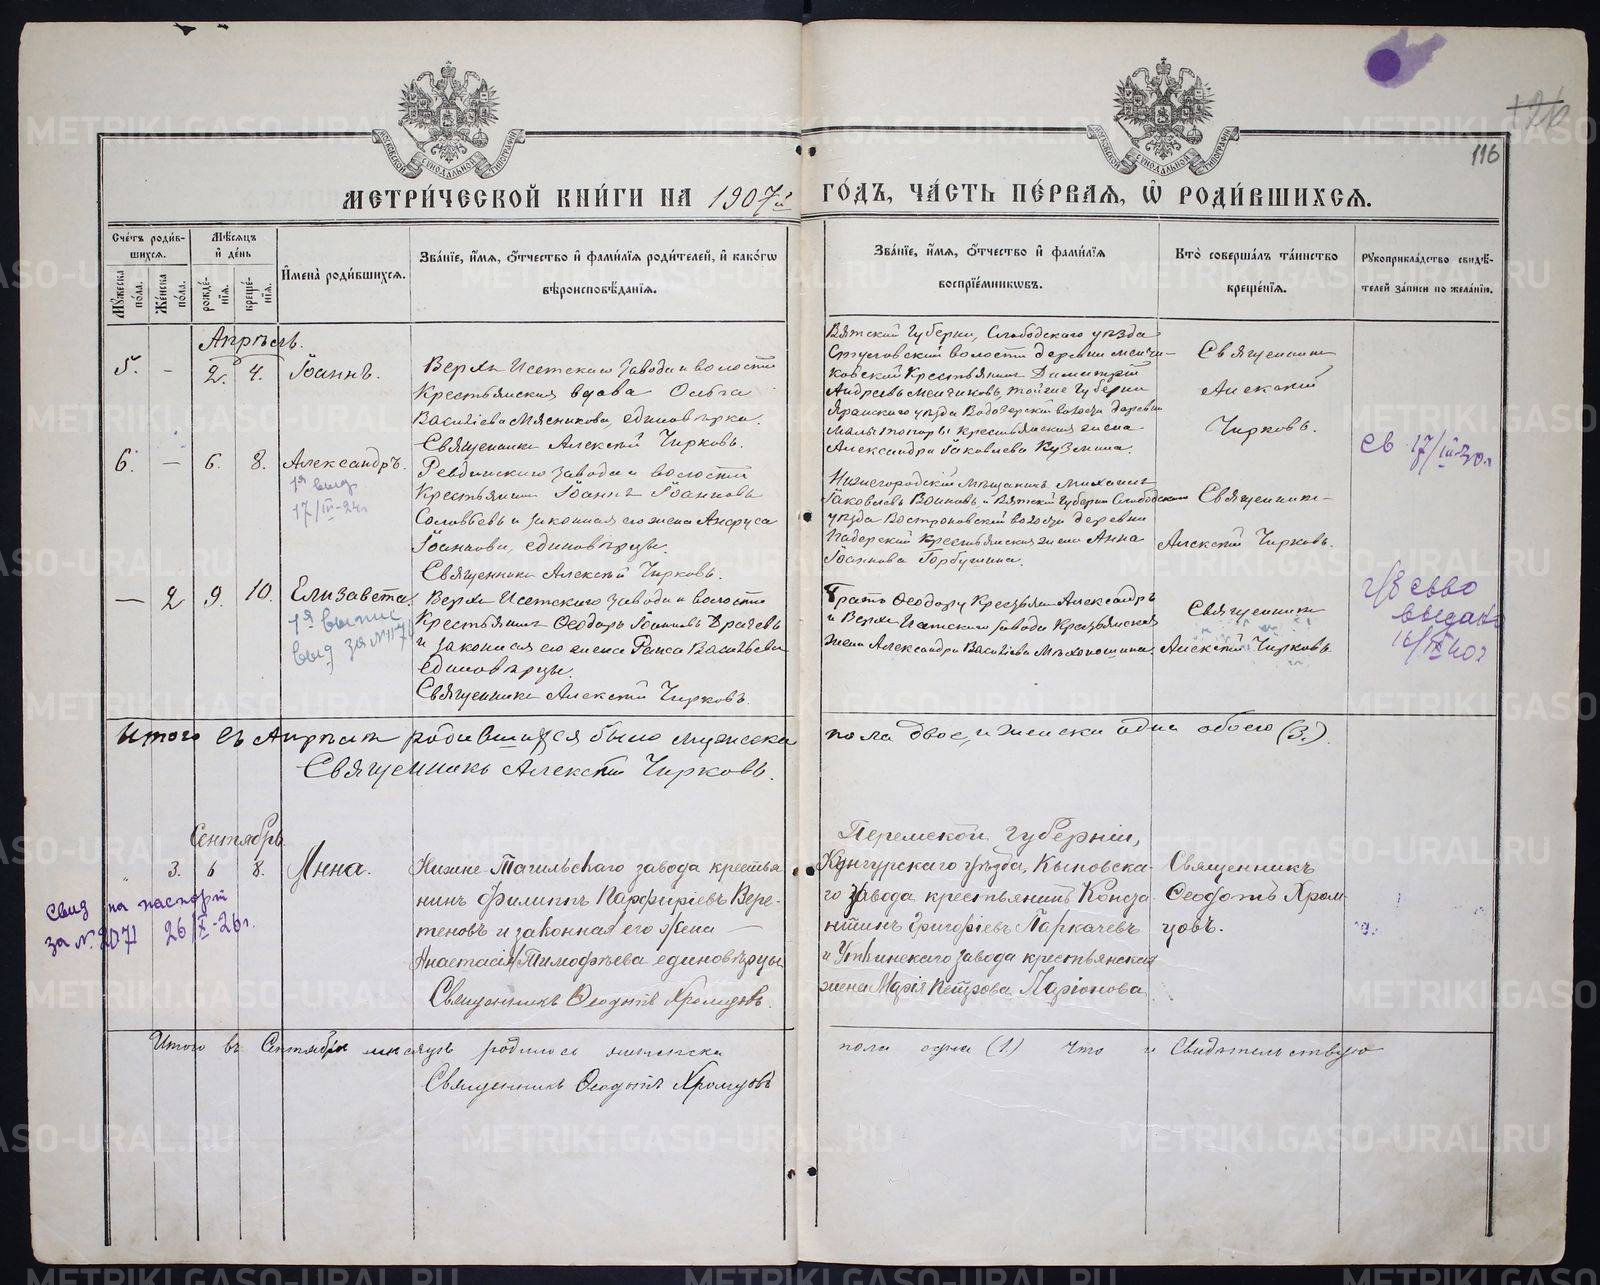 116
МЕТРИ́ЧЕСКОЙ КНИ́ГИ НА 1907й ГО́ДЪ, ЧА́СТЬ ПЕ́РВАЯ, Ѽ РОДИ́ВШИХСЯ.
Сче́тъ роди́в-
шихся.
Мꙋ́жеска по́ла.
Же́нска по́ла.
Мѣ́сяцъ и́ де́нь
рожде́-
нїя.
креще́-
нїя.
И҆мена̀ роди́вшихся.
Зва́нїе, и҆́мя, ѻ҆́тчество и҆ фами́лїя роди́телей, и҆ како́гѡ
вѣроисповѣ́данїя.
Зва́нїе, и҆́мя, ѻ҆́тчество и҆ фами́лїя
воспрїе́мникѡвъ.
Кто̀ соверша́лъ та́инство
креще́нїя.
Рꙋкоприкла́дство свидѣ́-
телей за́писи по жела́нїю.
Апрѣль.
5. - 2. 4. Іоаннъ.
Верхъ Исетскаго завода и волости
Крестьянская вдова Ольга
Васильева Мясникова, единовѣрка.
Священникъ Алексѣй Чирковъ.
Вятской Губерніи, Слободскаго уѣзда
Стуловской волости деревни Менчи-
ковской Крестьянинъ Димитрій
Андреевъ Менчиковъ, тойже Губерніи
Яранскаго уѣзда Водозерской волости деревни
Малы Топоры Крестьянская жена
Александра Іаковлева Кузмина.
Священникъ
Алексѣй
Чирковъ.
6. - 6. 8. Александръ.
1я выд
17/III-24г
Ревдинскаго завода и волости
Крестьянинъ Іоаннъ Іоанновъ
Соловьевъ и законная его жена Анфуса
Іоаннова, единовѣрцы.
Священникъ Алексѣй Чирковъ.
Нижегородскій Мѣщанинъ Михаилъ
Іаковлевъ Воиновъ и Вятской Губерніи Слободскаго
уѣзда Востроновской волости деревни
Крестьянская жена Анна
Іоаннова Горбушина.
Священникъ
Алексѣй Чирковъ.
Св 17/III-30г
- 2 9. 10. Елизавета.
1я выпис
выд за №1171
Верхъ Исетскаго завода и волости
Крестьянинъ Ѳеодоръ Іоанновъ Драчевъ
и законная его жена Раиса Васильева
единовѣрцы.
Священникъ Алексѣй Чирковъ.
Братъ Ѳеодору Крестьян. Александръ
и Верхъ Исетскаго завода Крестьянская
жена Александра Васильева Мѣхоношина.
Священникъ
Алексѣй Чирковъ.
выдано
16/IX 40г
Итого въ Апрѣлѣ родившихся было мужеска пола двое, и женска одна обоего (3.)
Священникъ Алексѣй Чирковъ.
Сентябрь
3. 6 8. Анна.
Свид на паспорт
за №2071 26/X-26г.
Нижне Тагильскаго завода крестья
нинъ Филиппъ Парфиріевъ Вере-
теновъ и законная его жена
Анастасія Тимофѣева единовѣрцы
Священникъ Ѳеодотъ Хромцовъ.
Перемской губерніи,
Кунгурскаго уѣзда, Кыновска-
го завода крестьянинъ Конста
нтинъ Григоріевъ Паркачевъ
и Уткинскаго завода крестьянская
жена Марія Петрова Ларіонова
Священникъ
Ѳеодотъ Хром
цовъ.
Итого въ Сентябрѣ месяцѣ родилось женска пола одна (1) что и Свидѣтельствую
Священникъ Ѳеодотъ Хромцовъ
METRIKI.GASO-URAL.RU